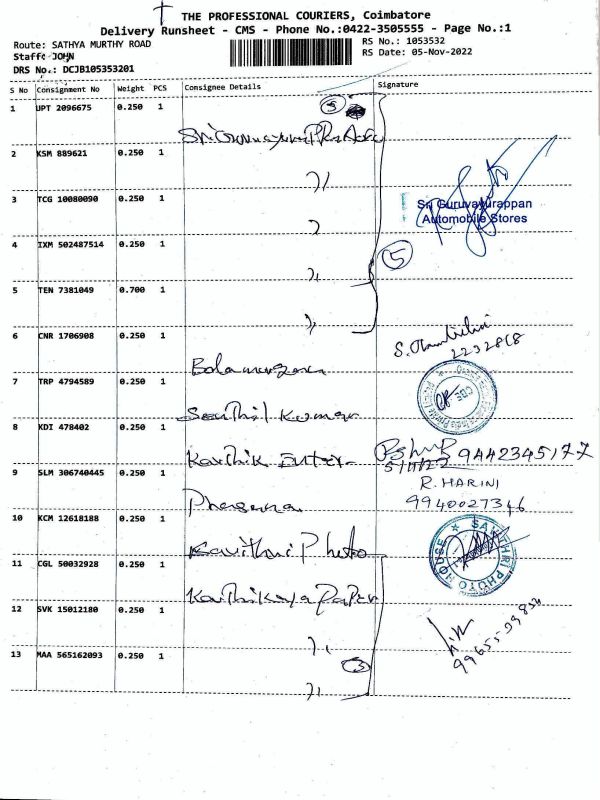 THE PROFESSIONAL COURIERS, Coimbatore
Delivery Runsheet - CMS - Phone No.:0422-3505555 - Page No.:1
Route: SATHYA MURTHY ROAD
Staff: JOHN
DRS No.: DCJB105353201
RS No.: 1053532
RS Date: 05-Nov-2022
S No Consignment No Weight PCS Consignee Details Signature
1 UPT 2096675 0.250 1
5
Sri Guruvayur
2 KSM 889621 0.250 1
3 TCG 10080090 0.250 1
Sri Guruvayurappan
Automobile Stores
4 IXM 502487514 0.250 1
5
5 TEN 7381049 0.700 1
6 CNR 1706908 0.250 1
2232818
Balamurugan
7 TRP 4794589 0.250 1
Senthil Kumar
8 KDI 478402 0.250 1
Karthik Enter
5/11/22 9442345177
9 SLM 306740445 0.250 1
R. HARINI
9940027346
10 KCM 12618188 0.250 1
Savithri Photo
SAVITHRI PHOTO HOUSE
11 CGL 50032928 0.250 1
Karthikeya Paper
12 SVK 15012180 0.250 1
3
13 MAA 565162093 0.250 1